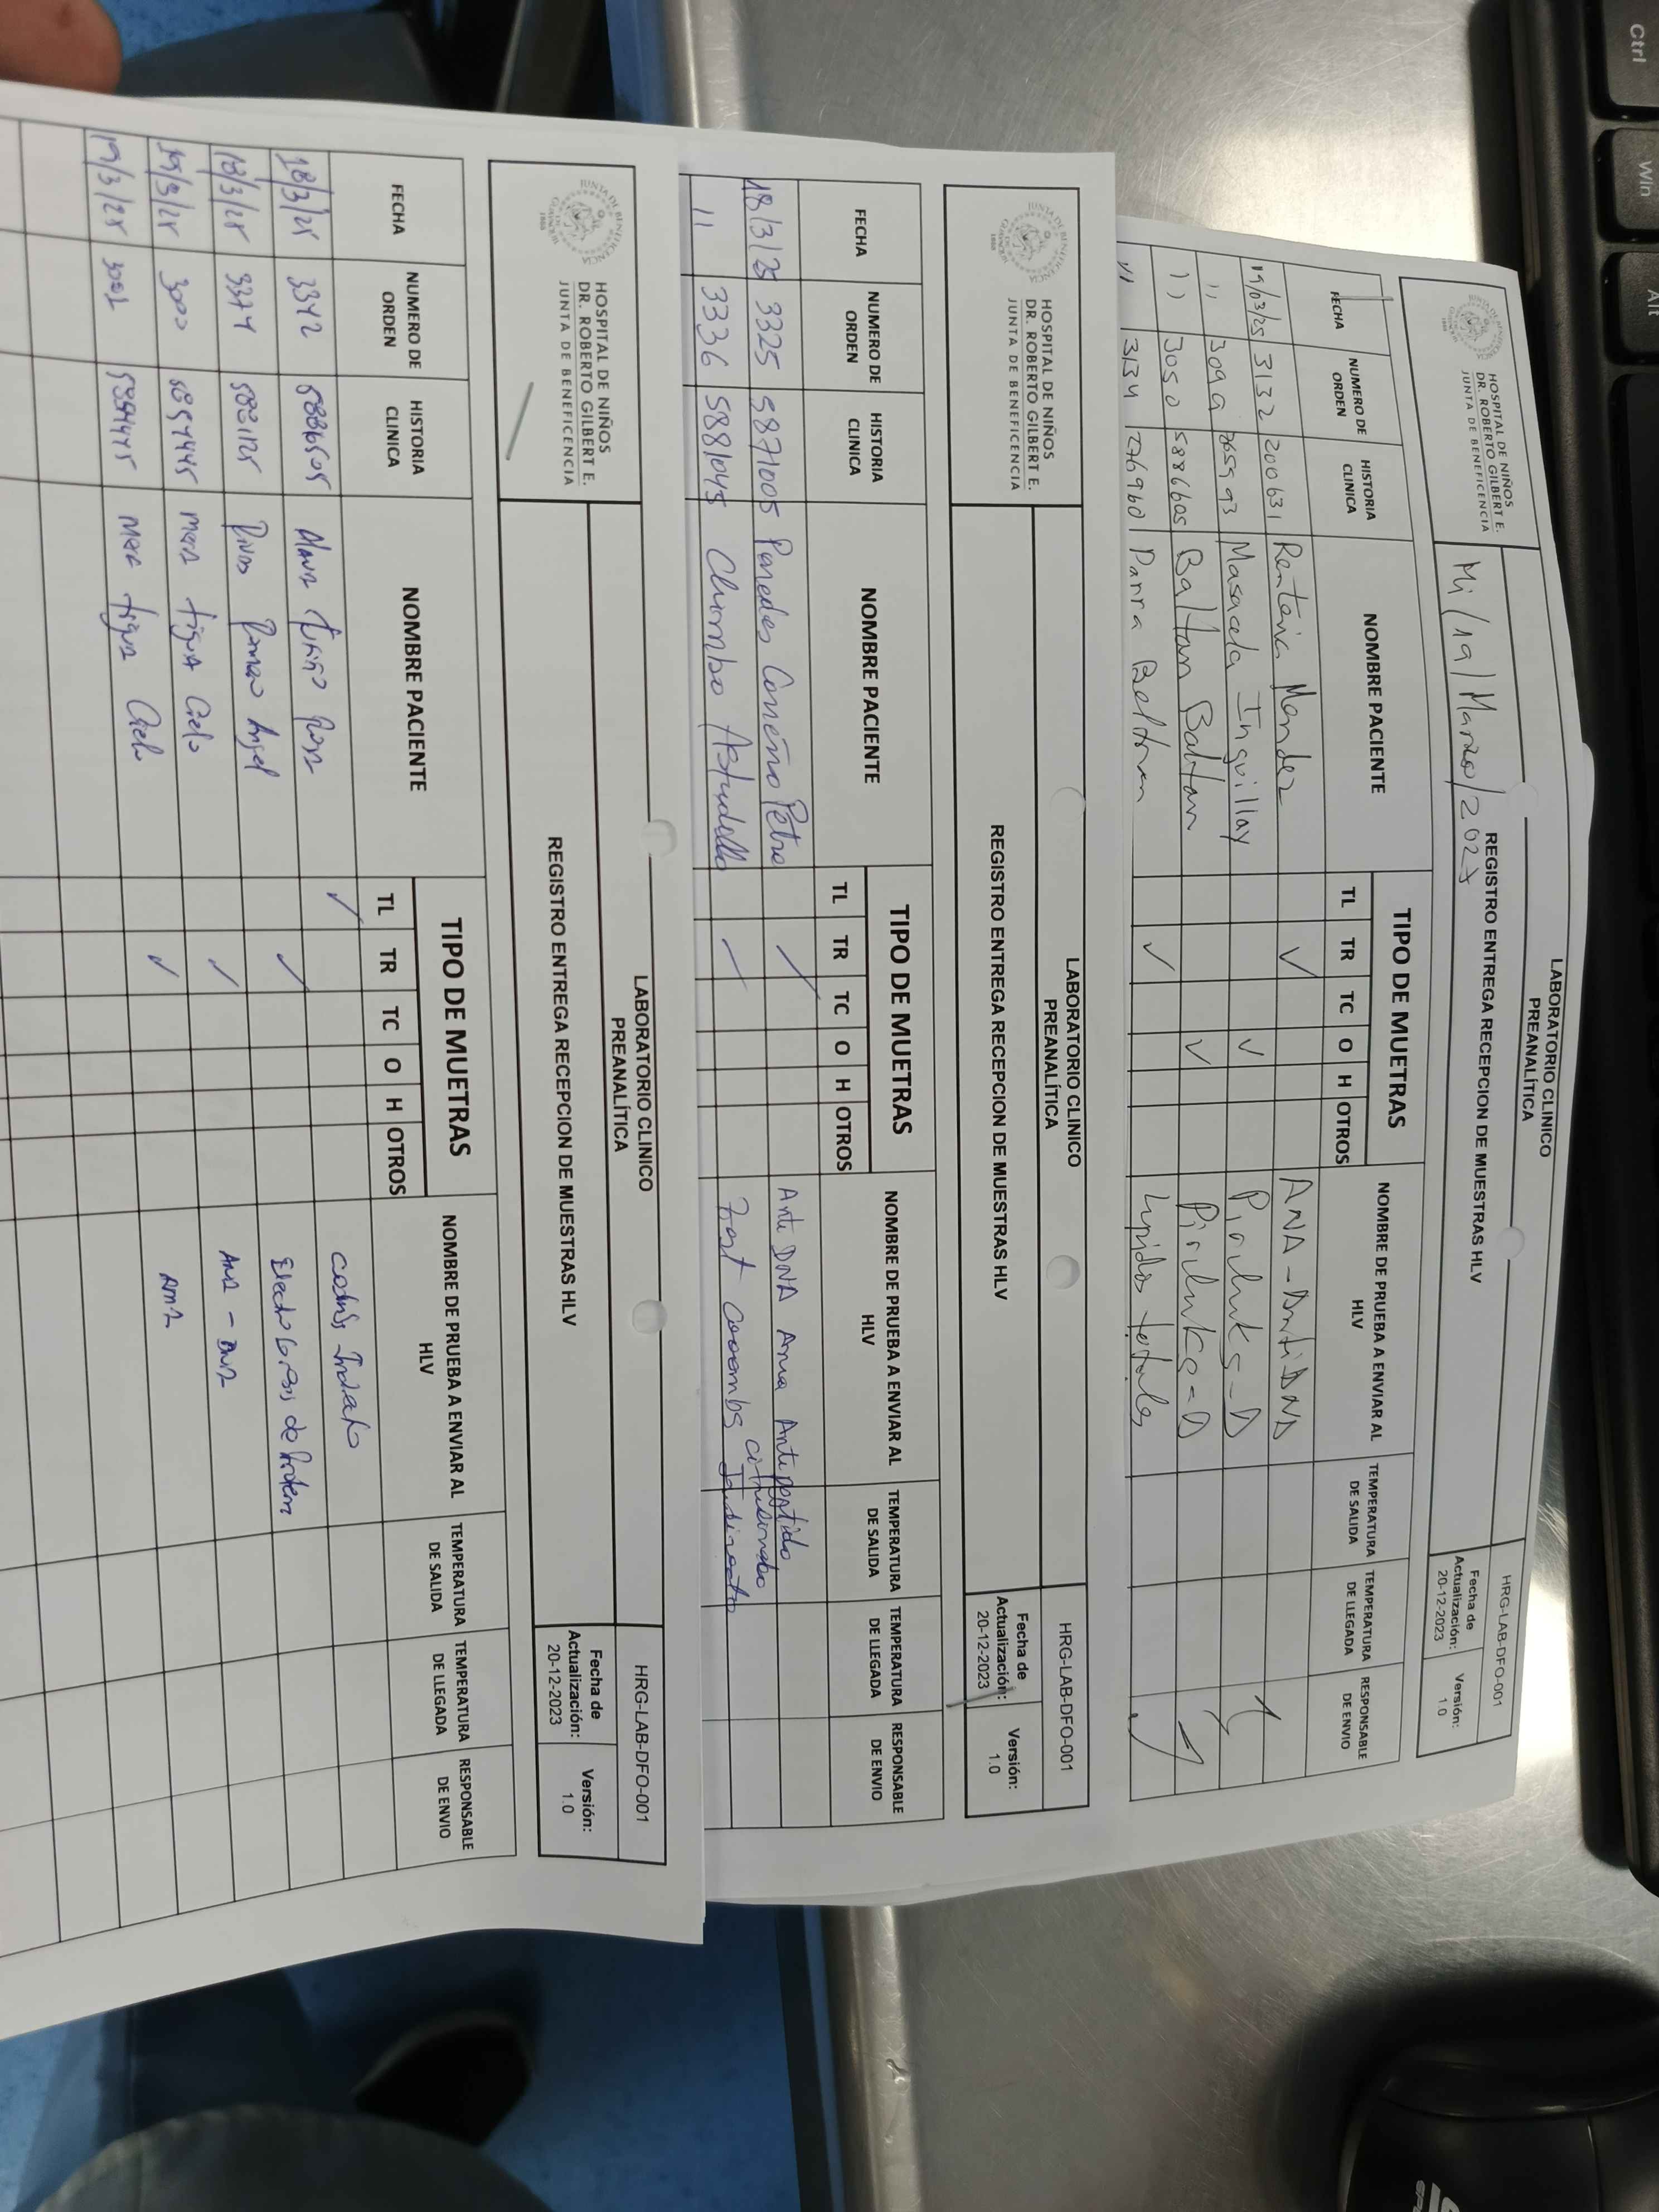 Ctrl
Win
Alt
HOSPITAL DE NIÑOS
DR. ROBERTO GILBERT E.
JUNTA DE BENEFICENCIA
LABORATORIO CLINICO
PREANALÍTICA
HRG-LAB-DFO-001
Mi/19/Marzo/202
REGISTRO ENTREGA RECEPCION DE MUESTRAS HLV
Fecha de
Actualización:
20-12-2023
Versión:
1.0
FECHA NUMERO DE ORDEN HISTORIA CLINICA NOMBRE PACIENTE TIPO DE MUETRAS NOMBRE DE PRUEBA A ENVIAR AL HLV TEMPERATURA DE SALIDA TEMPERATURA DE LLEGADA RESPONSABLE DE ENVIO
TL TR TC O H OTROS
19/03/25 3132 200631 Rentería Mendez ✓ ANA - AntiDNA
11 3099 Masacela Inguillay ✓
11 3050 5886605 Baltan Baltan ✓
11 3134 276960 Parra Beltran ✓ Lipidos totales
HOSPITAL DE NIÑOS
DR. ROBERTO GILBERT E.
JUNTA DE BENEFICENCIA
LABORATORIO CLINICO
PREANALÍTICA
HRG-LAB-DFO-001
REGISTRO ENTREGA RECEPCION DE MUESTRAS HLV
Fecha de
Actualización:
20-12-2023
Versión:
1.0
FECHA NUMERO DE ORDEN HISTORIA CLINICA NOMBRE PACIENTE TIPO DE MUETRAS NOMBRE DE PRUEBA A ENVIAR AL HLV TEMPERATURA DE SALIDA TEMPERATURA DE LLEGADA RESPONSABLE DE ENVIO
TL TR TC O H OTROS
18/3/25 3325 5871005 Paredes Carreño Petra ✓ Anti DNA Ana Anti peptido
11 3336 5881045 Chumbo Astudillo ✓ Test coombs Indirecto
HOSPITAL DE NIÑOS
DR. ROBERTO GILBERT E.
JUNTA DE BENEFICENCIA
LABORATORIO CLINICO
PREANALÍTICA
HRG-LAB-DFO-001
REGISTRO ENTREGA RECEPCION DE MUESTRAS HLV
Fecha de
Actualización:
20-12-2023
Versión:
1.0
FECHA NUMERO DE ORDEN HISTORIA CLINICA NOMBRE PACIENTE TIPO DE MUETRAS NOMBRE DE PRUEBA A ENVIAR AL HLV TEMPERATURA DE SALIDA TEMPERATURA DE LLEGADA RESPONSABLE DE ENVIO
TL TR TC O H OTROS
18/3/25 3342 5886605 ✓
18/3/25 3374 Angel ✓
19/3/25 3000 Mera Tigua Cielo ✓
19/3/25 3002 Mera Tigua Cielo ✓